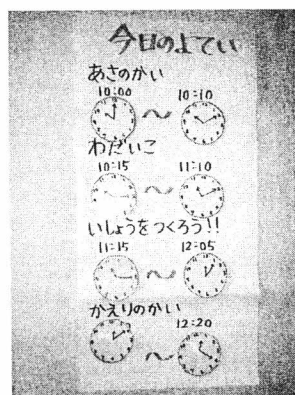 今日のよてい
あさのかい
10:00 〜 10:10
わだいこ
10:15 〜 11:10
いしょうをつくろう!!
11:15 〜 12:05
かえりのかい
〜 12:20